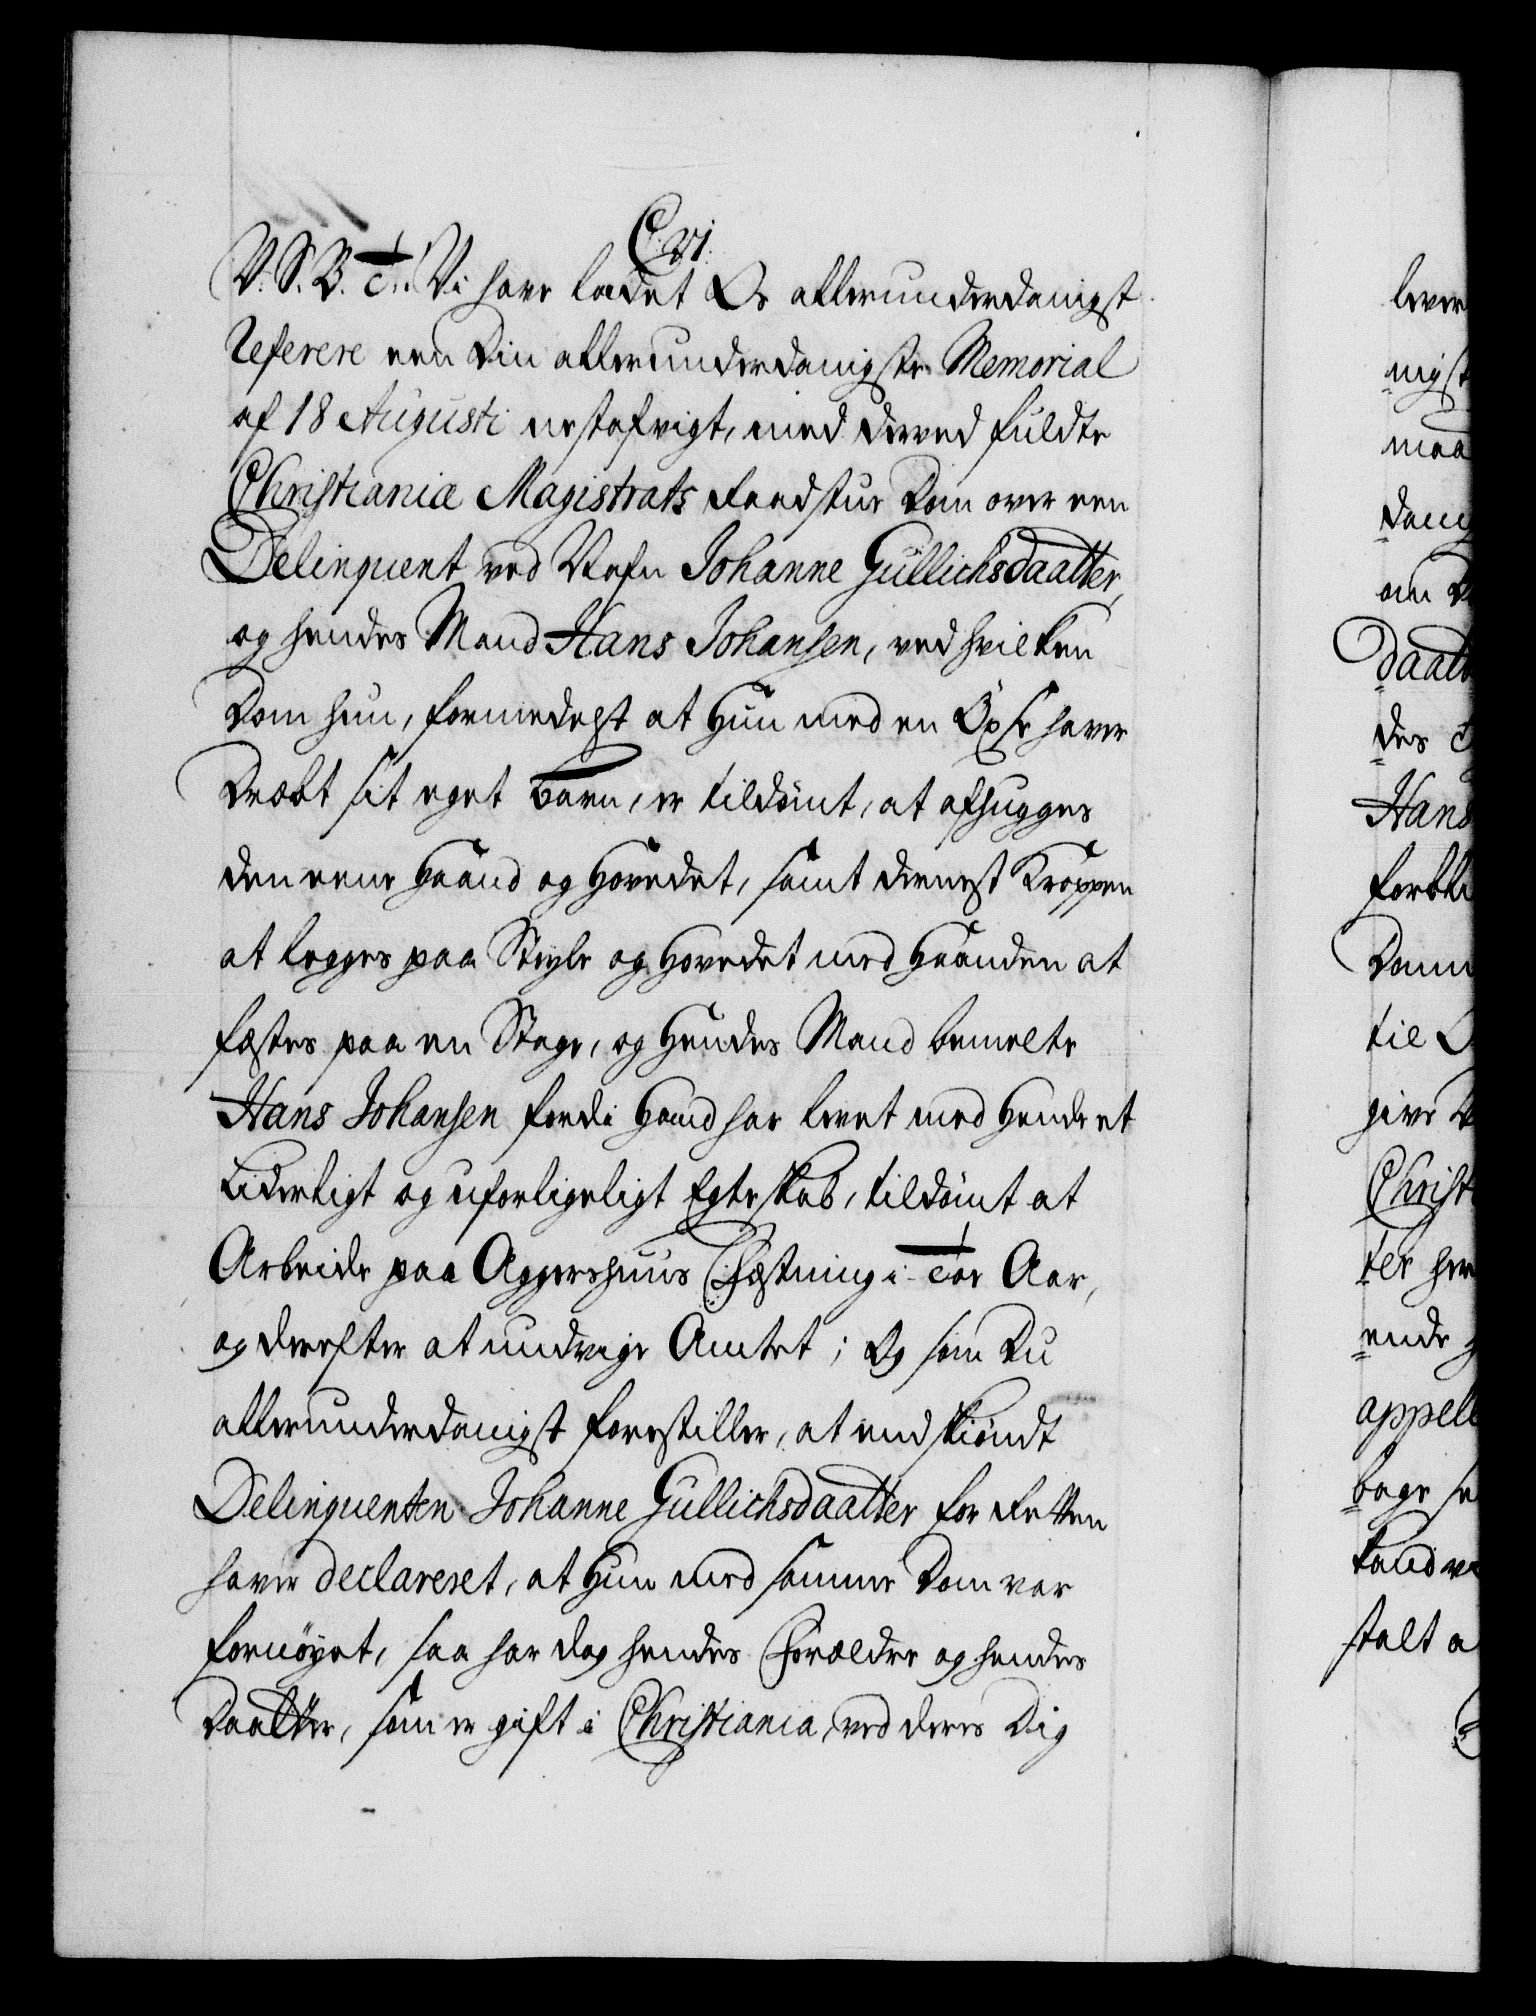 C: vi.
V. S. B. T. Vi have ladet Os allerunderdanigst
Referere een Din allerunderdanigste Memorial
af 18 Augusti nestafvigt, med derved fuldte
Christianiæ Magistrats Raadstue Dom over een
Delinquent ved Nafn Johanne Gullichsdaatter,
og hendes Mand Hans Johansen, ved hvilken
Dom hun, formedelst at Hun med en Öxse haver
Dræbt sit eget Barn, er tildömt, at afhugges
den eene Haand og Hovedet, samt dernest Kroppen
at legges paa Steyle og Hovedet med Haanden at
fæstes paa en Stage, og Hendes Mand bemelte
Hans Johansen fordi Hand har levet med Hende et
Liderligt og uforligeligt Egteskab, tildömt at
Arbeide paa Aggershuus Fæstning i Toe Aar,
og derefter at undvige Amtet; Og som Du
allerunderdanigst forestiller, at endskiöndt
Delinquenten Johanne Gullichsdaatter for Retten
haver declareret, at Hun med samme Dom var
fornöyet, saa har dog hendes Forældre og hendes
Daatter, som er gift i Christiania, ved deres Dig
lever
nigst
maa
dani
om
daatt
des
Hans
forbli
Dom
til
give
Christ
ter her
ende
appell
bage
stalt a